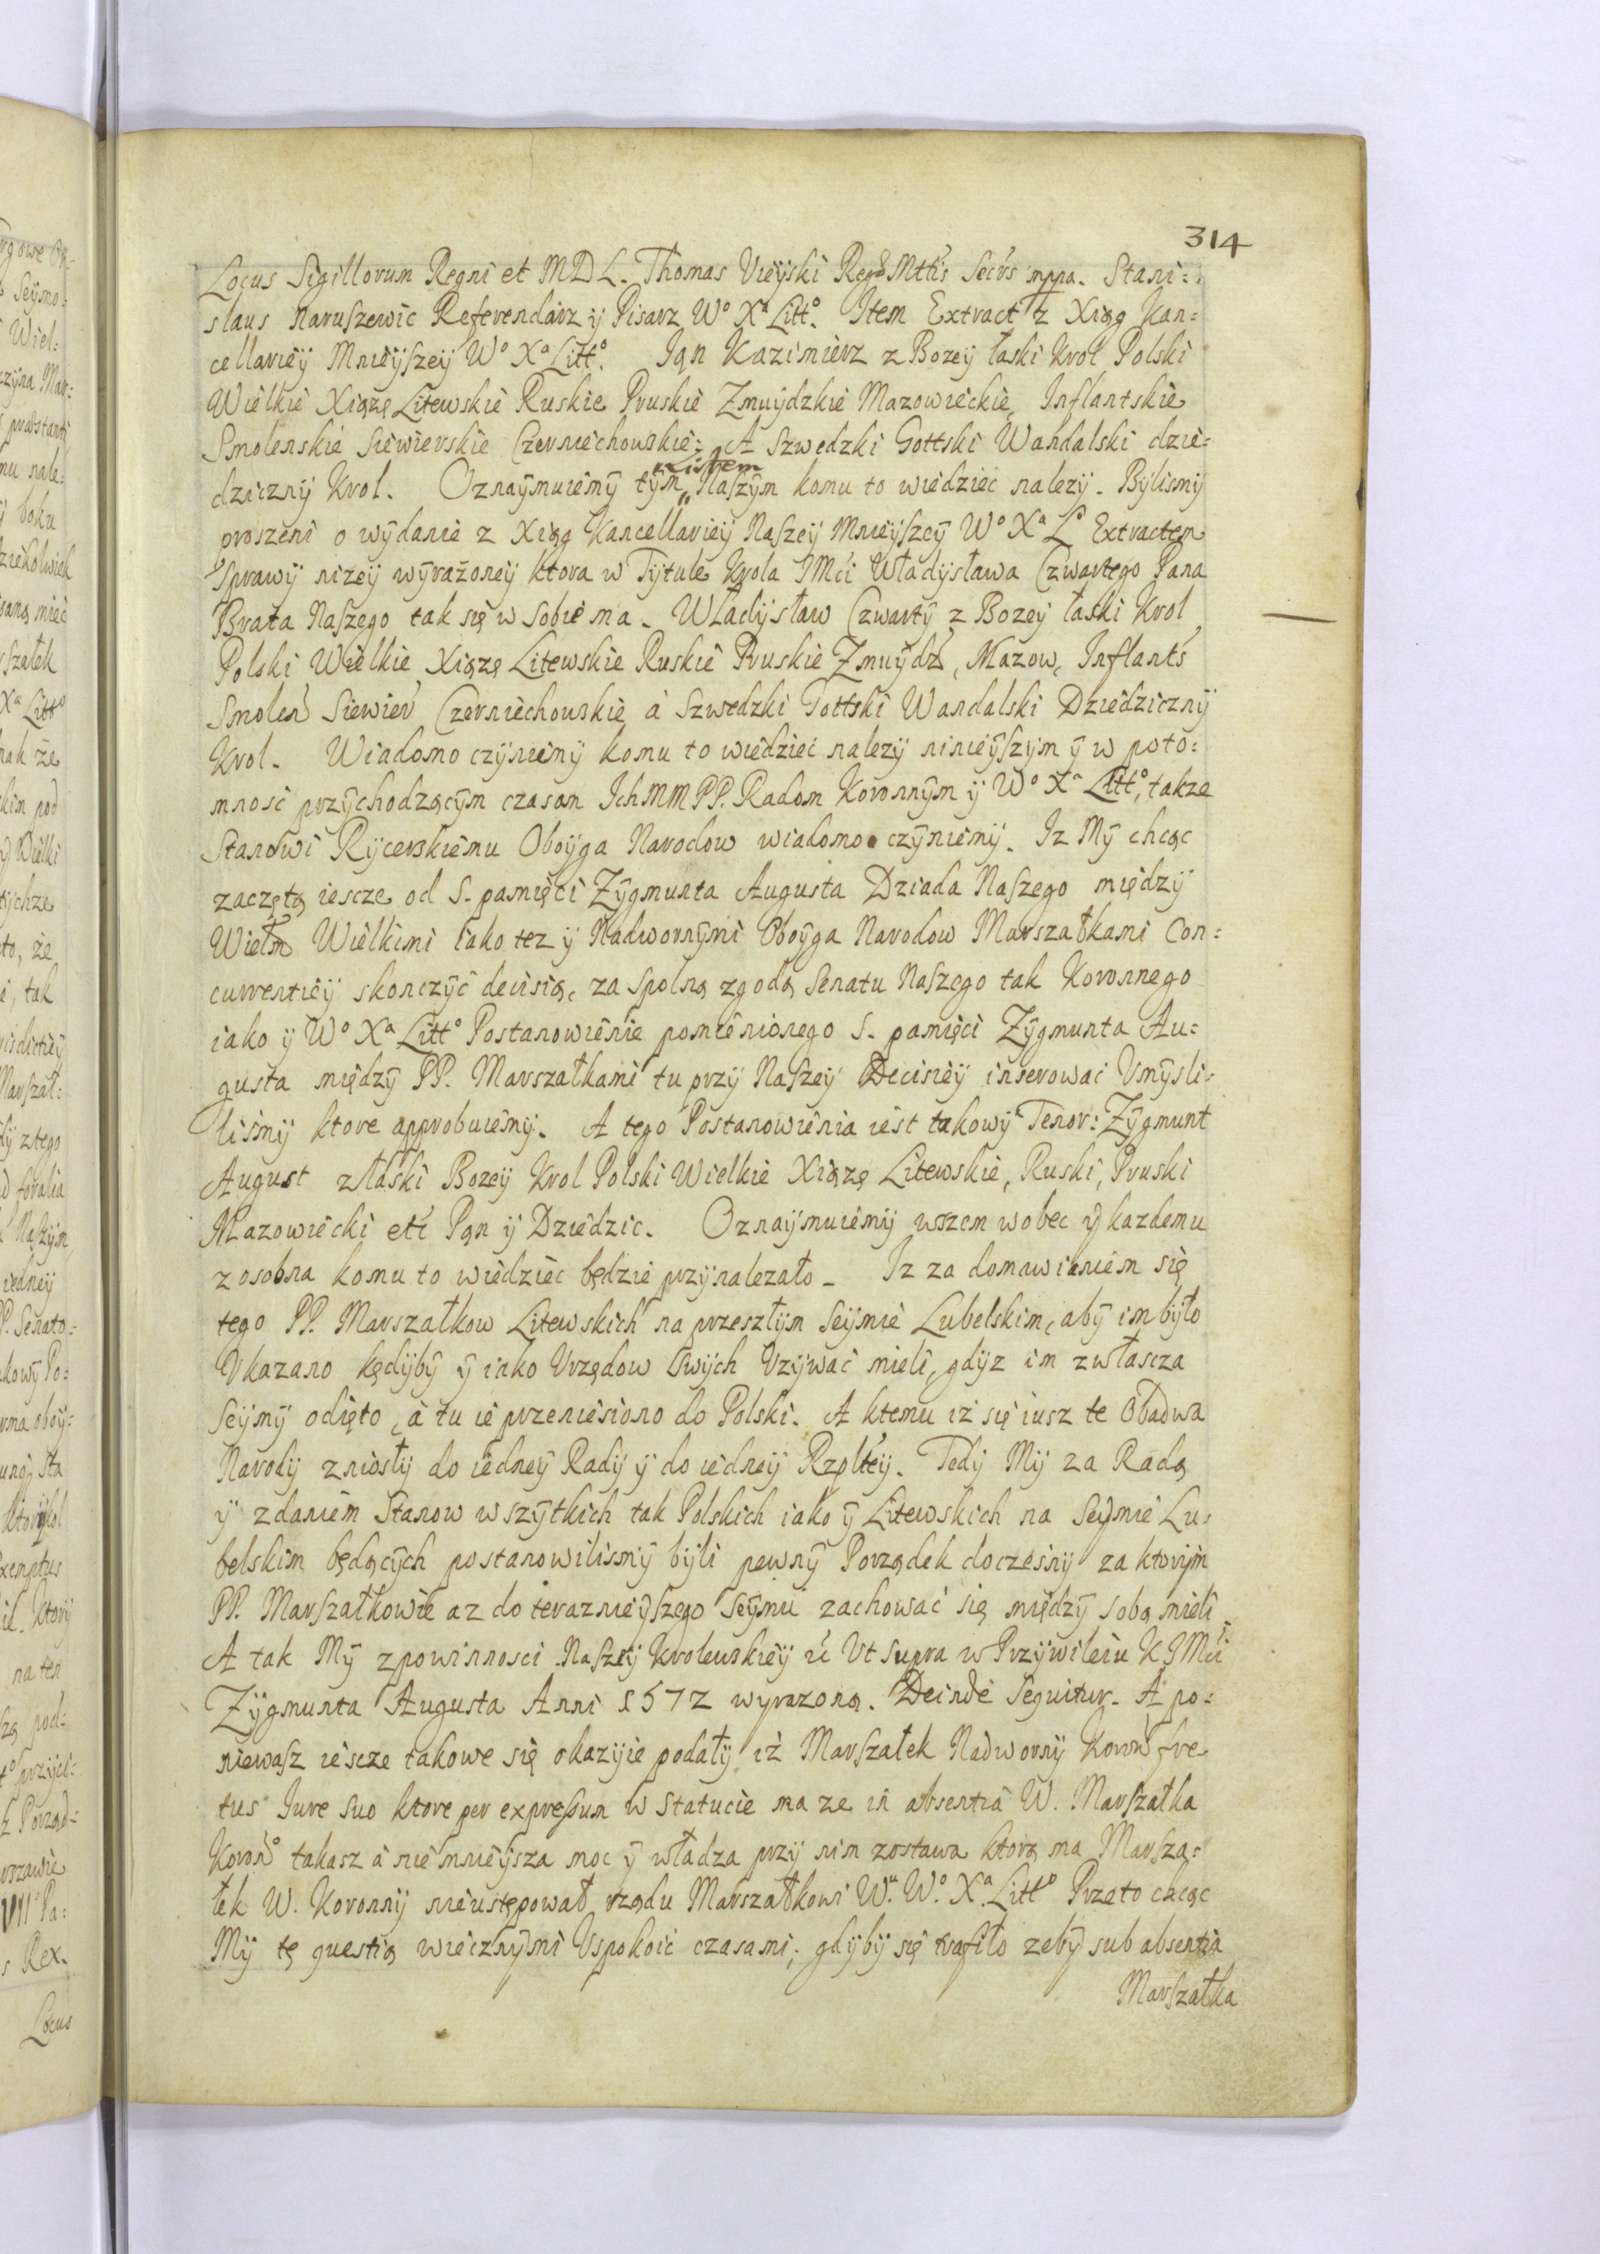 314
Locus Sigillorum Regni et M D L. Thomas Vieyski Regᵒ Mttis Secŕs mppa. Stani=
slaus Naruszewic Referendarz ÿ Pisarz Wº Xª Littº. Item Extract z Xiąg Kan=
cellariey Mnieyszey Wº Xª Littº. Ian Kazimierz z Bozey łaski Krol Polski
Wielkie Xiązę Litewskie Ruskie Pruskie Zmuydzkie Mazowieckie, Inflantskie
Smolenskie Siewierskie Czerniechowskie: A Szwedzki Gottski Wandalski dzie=
dziczny Krol. Oznaymuiemy tym listem Naszym komu to wiedziec nalezy. Bylismy
proszeni o wydanie z Xiąg Kancellariey Naszey Mnieyszey Wº Xª Lº Extractem
Sprawy nizey wyrażoney ktora w Tytule Krola JMci Władysława Czwartego Pana
Brata Naszego tak się w sobie ma. Władysław Czwarty z Bozey łaski Krol
Polski Wielkie Xiązę Litewskie Ruskie Pruskie Zmuydz, Mazow, Inflants
Smolen Siewier Czerniechowskie à Szwedzki Gottski Wandalski Dziedziczny
Krol. Wiadomo czyniemy komu to wiedziec nalezy ninieyszym y w poto=
mnosc przychodzącym czasom Ich MM PP. Radom Koronnym y Wº Xª Littº, takze
Stanowi Rycerskiemu Oboyga Narodow wiadomo czyniemy. Iz My chcąc
zaczętą iescze od S. pamięci Zygmunta Augusta Dziada Naszego między
Wielm Wielkimi iako tez y Nadwornymi Oboyga Narodow Marszałkami Con=
currentiey skonczyć decisią, za spolną zgodą Senatu Naszego tak Koronnego
iako y Wº Xª Littº Postanowienie pomienionego S. pamięci Zygmunta Au=
gusta między PP. Marszałkami tu przy Naszey Decisiey inserować Vmysli=
lismy ktore approbuiemy. A tego Postanowienia iest takowy Tenor: Zygmunt
August z łaski Bozey Krol Polski Wielkie Xiązę Litewskie, Ruski, Pruski
Mazowiecki etc Pan y Dziedzic. Oznaymuiemy wszem wobec y kazdemu
z osobna komu to wiedziec będzie przynalezało. Iz za domawianiem się
tego PP. Marszałkow Litewskich na przeszłym Seymie Lubelskim, aby im było
Vkazano kędyby y iako Vrzędow swych Vzywać mieli, gdyz im zwłascza
Seymy odięto, à tu ie przeniesiono do Polski. A ktemu iz się iusz te Obadwa
Narody zniosły do iedney Rady y do iedney Rzpltey. Tedy My za Radą
y zdaniem Stanow wszytkich tak Polskich iako y Litewskich na Seymie Lu=
belskim będących postanowilismy byli pewny Porządek doczesny za ktorym
PP. Marszałkowie az do teraznieyszego Seymu zachować się między sobą mieli
A tak My z powinnosci Naszey Krolewskiey Vt supra w Przywileiu KJMci
Zygmunta Augusta Anni 1572 wyrazona. Deinde Sequitur. A po=
niewasz iescze takowe się okazyie podały iż Marszałek Nadworny Koron fre
tus Iure suo ktore per expressum w Statucie ma ze in absentia W. Marszałka
Koronº takasz à nie mnieysza moc y władza przy nim zostawa ktorą ma Marsza=
łek W. Koronny nieustępował rządu Marszałkowi W. Wº Xª Littº Przeto chcąc
My tę questią wiecznymi Vspokoic czasami, gdyby się trafiło zeby sub absentia
Marszałka